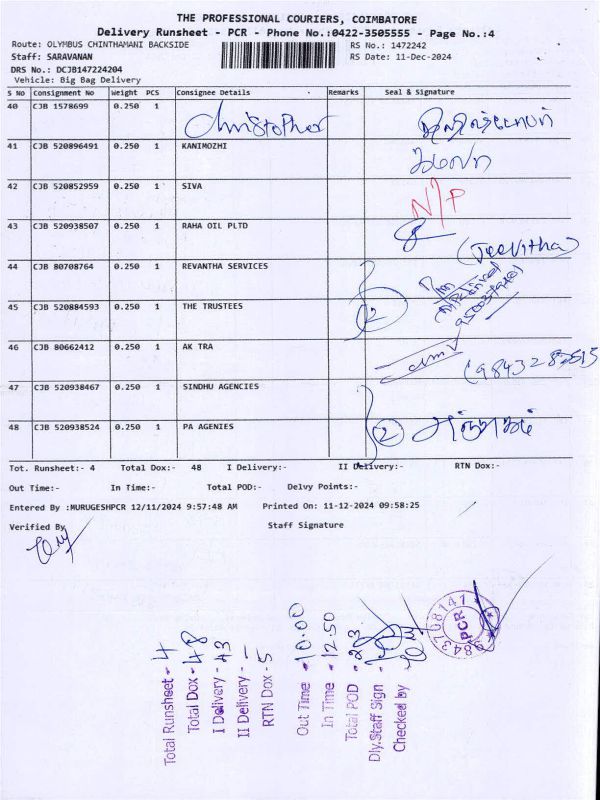 THE PROFESSIONAL COURIERS, COIMBATORE
Delivery Runsheet - PCR - Phone No.:0422-3505555 - Page No.:4
Route: OLYMBUS CHINTHAMANI BACKSIDE RS No.: 1472242
Staff: SARAVANAN RS Date: 11-Dec-2024
DRS No.: DCJB147224204
Vehicle: Big Bag Delivery
S No Consignment No Weight PCS Consignee Details Remarks Seal & Signature
40 CJB 1578699 0.250 1 Christopher
41 CJB 520896491 0.250 1 KANIMOZHI
42 CJB 520852959 0.250 1 SIVA N/P
43 CJB 520938507 0.250 1 RAHA OIL PLTD (Jeevitha)
44 CJB 80708764 0.250 1 REVANTHA SERVICES
45 CJB 520884593 0.250 1 THE TRUSTEES 2
46 CJB 80662412 0.250 1 AK TRA
47 CJB 520938467 0.250 1 SINDHU AGENCIES
48 CJB 520938524 0.250 1 PA AGENIES 2
Tot. Runsheet:- 4 Total Dox:- 48 I Delivery:- II Delivery:- RTN Dox:-
Out Time:- In Time:- Total POD:- Delvy Points:-
Entered By :MURUGESHPCR 12/11/2024 9:57:48 AM Printed On: 11-12-2024 09:58:25
Verified By Staff Signature
Total Runsheet - 4
Total Dox - 48
I Delivery - 43
II Delivery - —
RTN Dox - 5
Out Time - 10.00
In Time - 12.50
Total POD - 23
Dly.Staff Sign -
Checked by
PCR